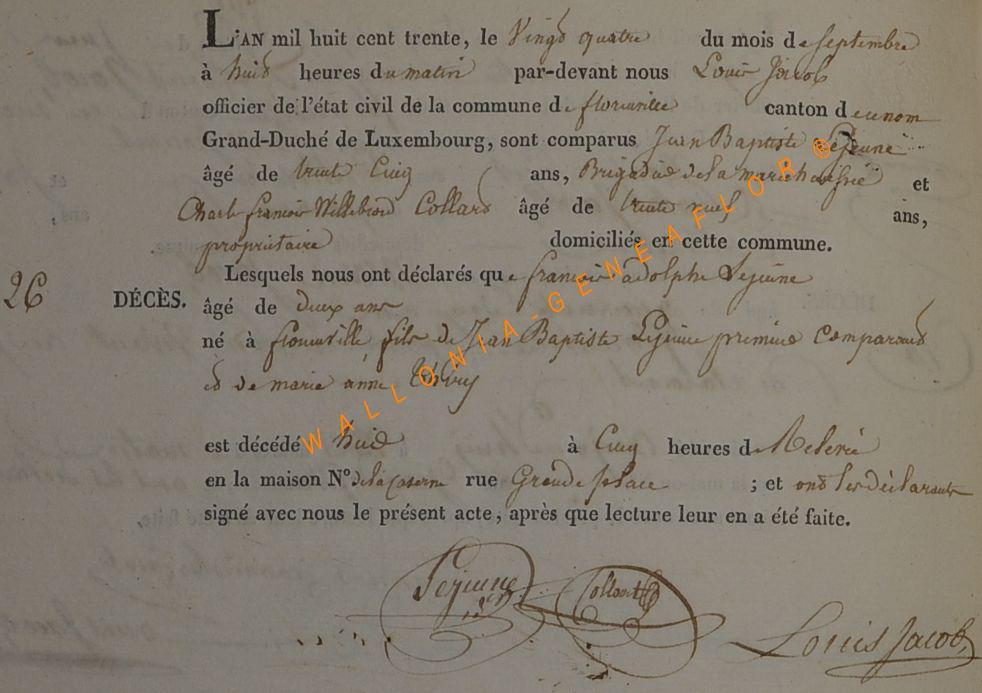 L'AN mil huit cent trente, le Vingt quatre du mois de septembre
à huit heures du matin par-devant nous Louis Jacob
officier de l'état civil de la commune de florenville canton du nom
Grand-Duché de Luxembourg, sont comparus Jean Baptiste Lejeune
âgé de trente Cinq ans, Brigadier de la marechaussée et
Charle francois Willebrord Collard âgé de trente neuf ans,
propriétaire domiciliés en cette commune.
Lesquels nous ont déclarés que francois adolphe Lejeune
26 DÉCÈS. âgé de deux ans
né à florenville, fils de Jean Baptiste Lejeune premier Comparant
et de marie anne
est décédé hier à Cinq heures de Relevé
en la maison N° de la Caserne rue Grande place ; et ont les déclarants
signé avec nous le présent acte, après que lecture leur en a été faite.
Lejeune Collard Louis Jacob
WALLONIA-GENEAFLOR ®